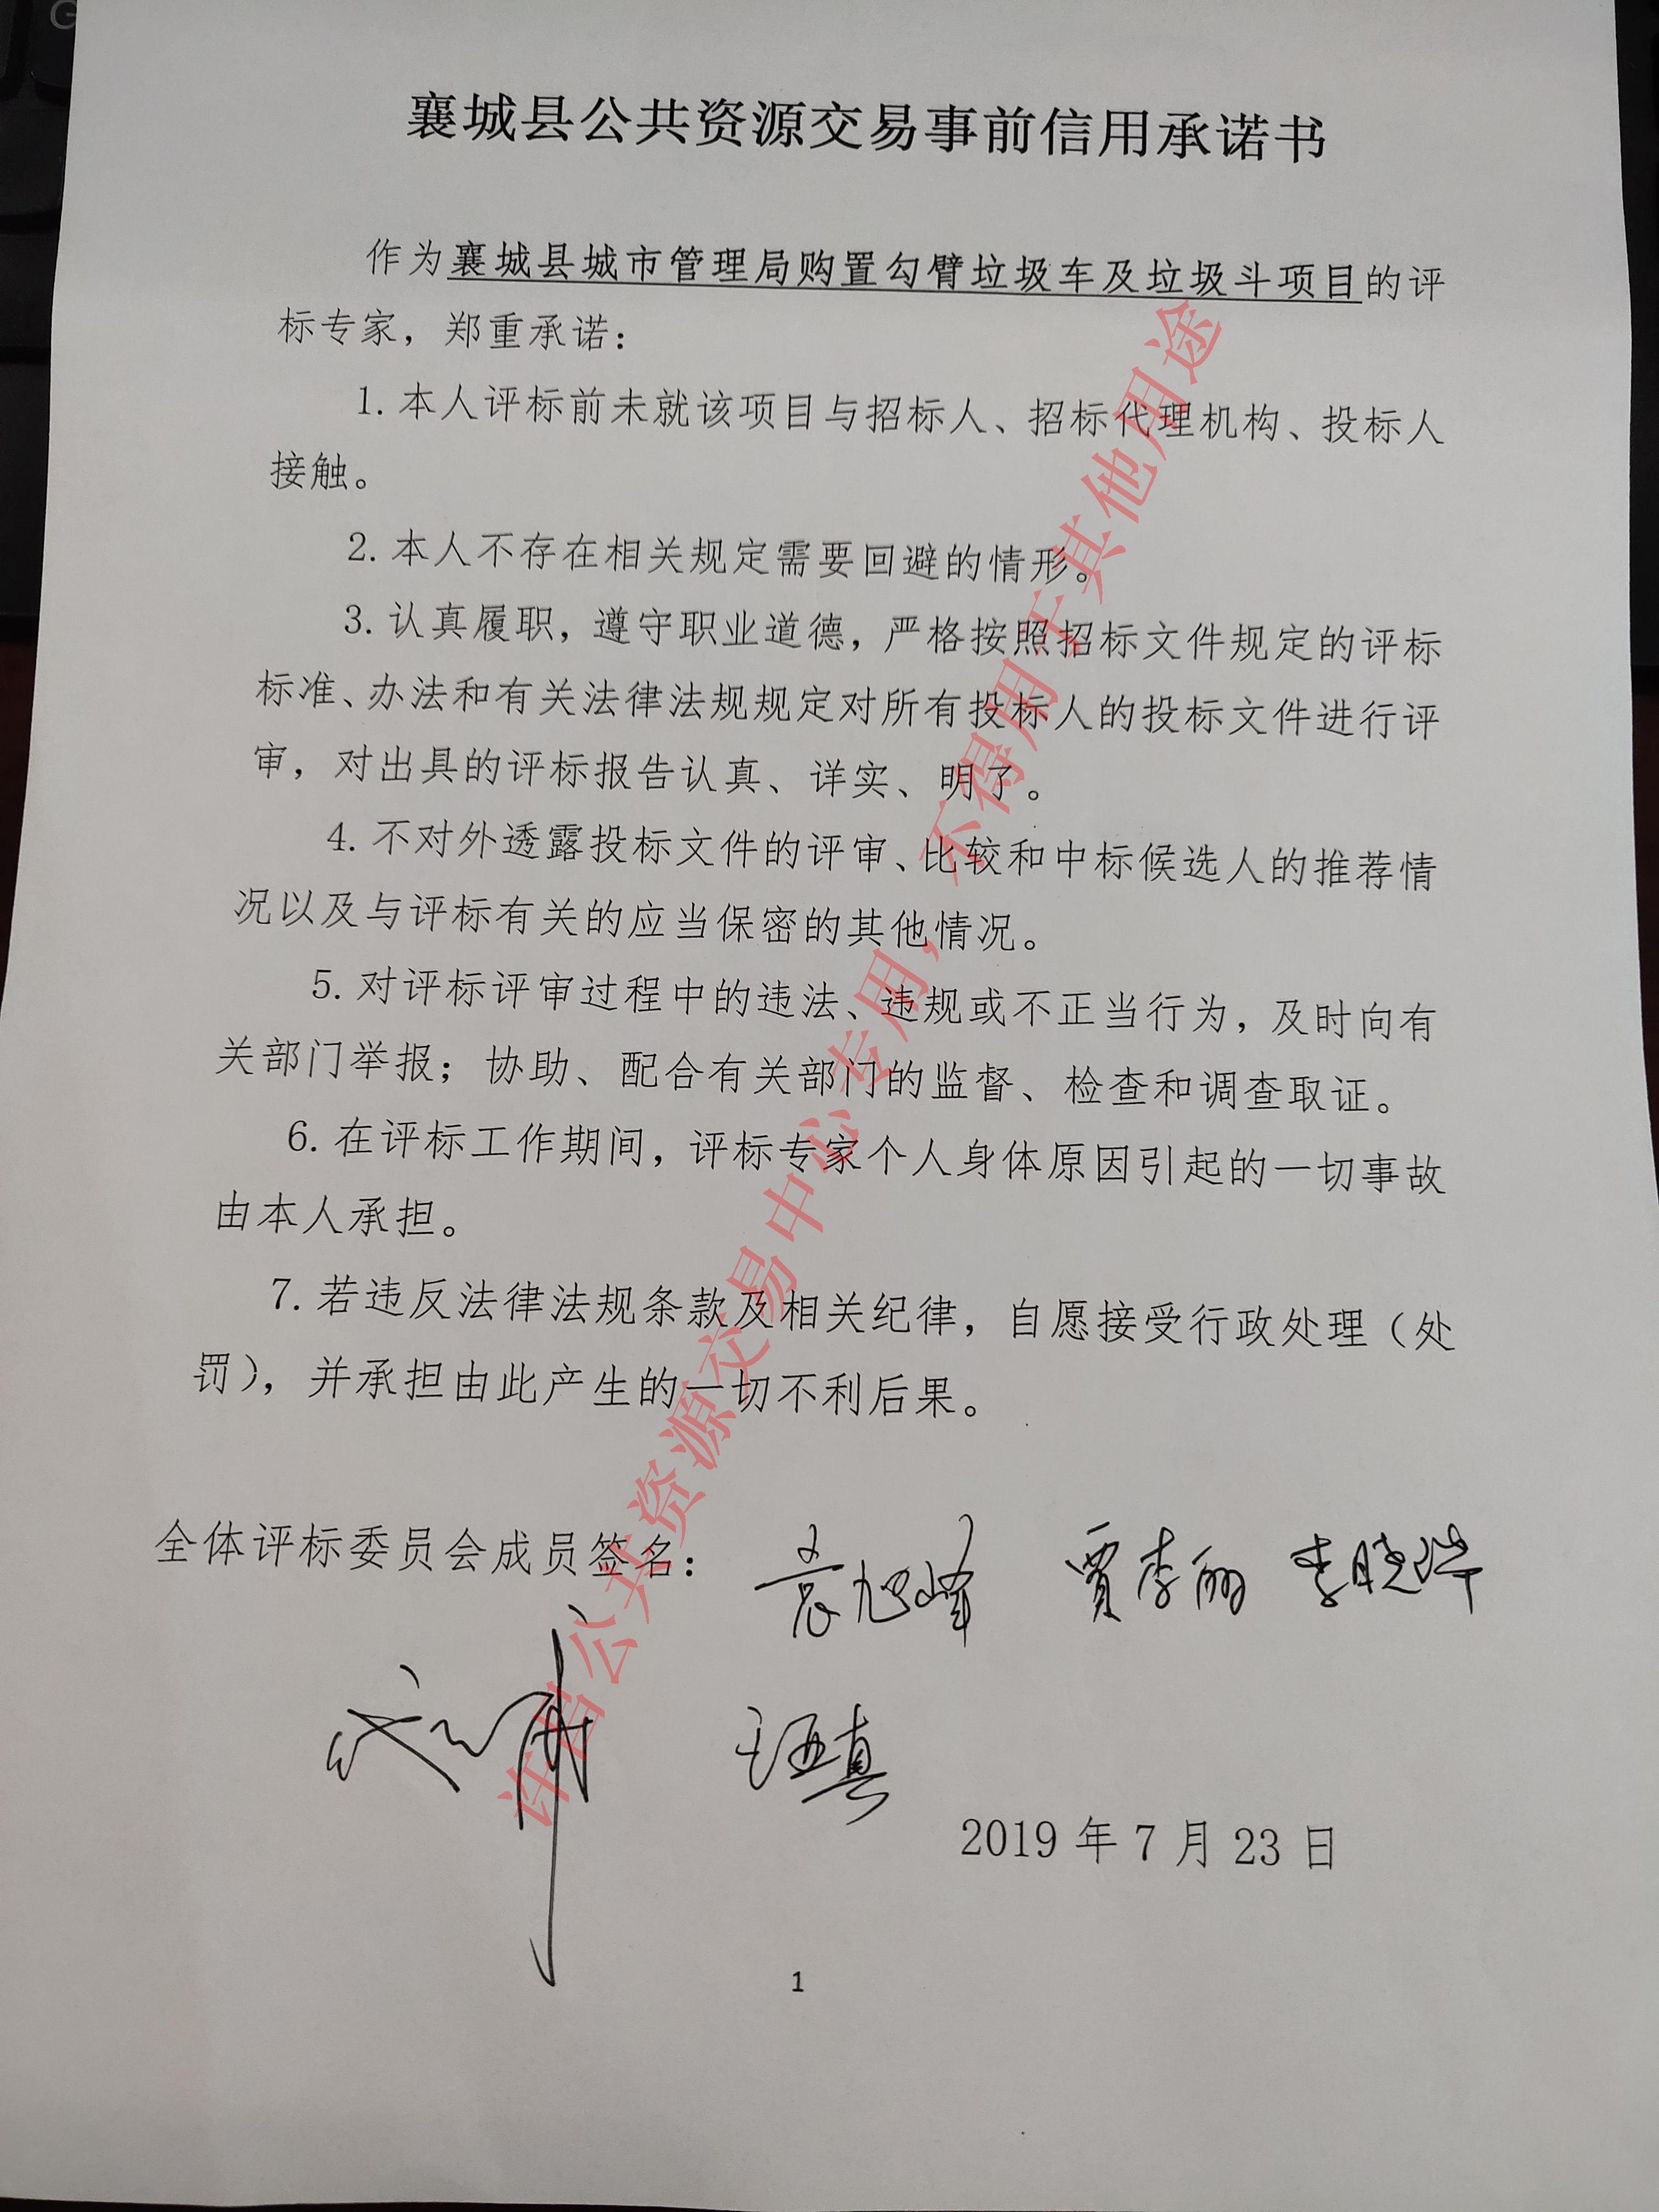 襄城县公共资源交易事前信用承诺书
作为襄城县城市管理局购置勾臂垃圾车及垃圾斗项目的评
标专家，郑重承诺：
1.本人评标前未就该项目与招标人、招标代理机构、投标人
接触。
2.本人不存在相关规定需要回避的情形。
3.认真履职，遵守职业道德，严格按照招标文件规定的评标
标准、办法和有关法律法规规定对所有投标人的投标文件进行评
审，对出具的评标报告认真、详实、明了。
4.不对外透露投标文件的评审、比较和中标候选人的推荐情
况以及与评标有关的应当保密的其他情况。
5.对评标评审过程中的违法、违规或不正当行为，及时向有
关部门举报；协助、配合有关部门的监督、检查和调查取证。
6.在评标工作期间，评标专家个人身体原因引起的一切事故
由本人承担。
7.若违反法律法规条款及相关纪律，自愿接受行政处理（处
罚），并承担由此产生的一切不利后果。
全体评标委员会成员签名： 袁旭峰 贾李丽
2019年7月23日
1
许昌公共资源交易中心专用，不得用于其他用途